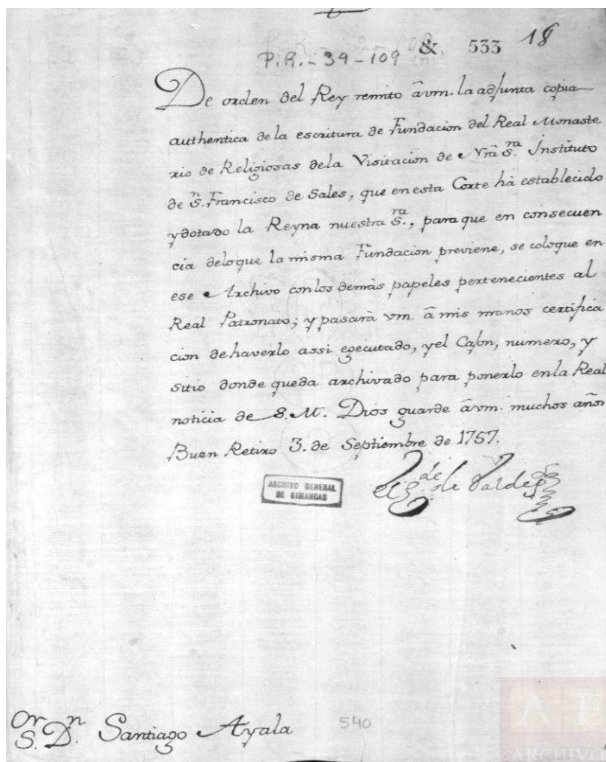 P.R.-39-109 & 533 18
De orden del Rey remito âvm. la adjunta copia
authentica de la escritura de Fundacion del Real Monaste
rio de Religiosas dela Visitacion de Nrâ S.ra Instituto
de S.n Francisco de Sales, que en esta Corte hà establecido
y dotado la Reyna nuestra S.ra, para que en consequen
cia delo que la misma Fundacion previene, se coloque en
ese Archivo con los demàs papeles pertenecientes al
Real Patronato; y pasarà vm. à mis manos certifica
cion de haverlo assi egecutado, y el Cajon, numero, y
sitio donde queda archivado para ponerlo en la Real
noticia de S.M. Dios guarde âvm. muchos años
Buen Retiro 3. de Septiembre de 1757.
ARCHIVO GENERAL
DE SIMANCAS
de Valdes
S.or D.n Santiago Ayala
540
AE
ARCHIVO